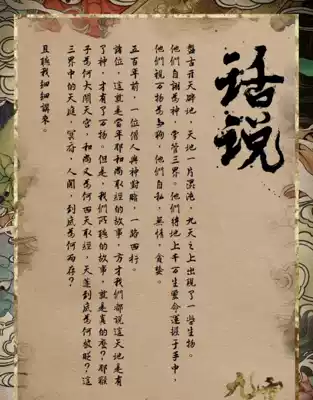 话说
盤古开天辟地，天地一片混沌，九天之上出現了一些生物。
他們自謂為神，掌管三界。他們将地上千百生靈命運握于手中，
他們視万物為芻狗，他們自私，無情，貪婪。
五百年前，一位僧人與神對賭，一路西行。
諸位，這就是當年那和尚取經的故事，方才我們都說這天地是有
了神，才有了万物。但是，我們所聽的故事，就是真的麼？那猴
子為何大鬧天宮，和尚又為何西天取經，天蓬到底為何被貶？這
三界中的天庭，冥府，人間，到底為何而存？
且聽我細細講來。